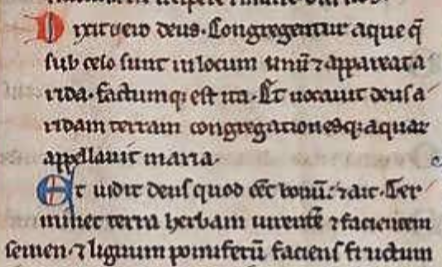 Dixit vero deus. Congregentur aque q̄
sub celo sunt in locum unū ⁊ appareat a
rida. factumq; est ita. Et vocavit deus a
ridam terram congregationesq; aquar
appellavit maria.
Et vidit deus quod eēt bonū. ⁊ ait. Ger
minet terra herbam virentē ⁊ facientem
semen. ⁊ lignum pomiferū faciens fructum